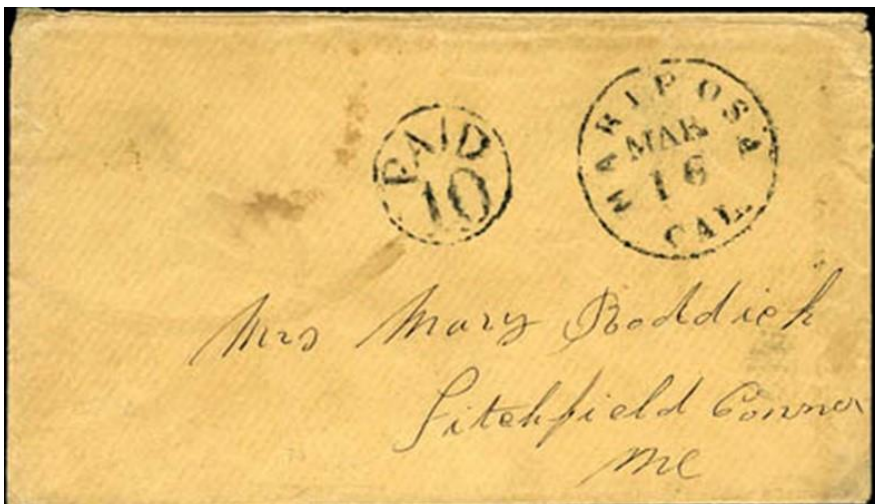 PAID
10
MARIPOSA
MAR
16
CAL.
Mrs Mary Roddick
Litchfield Corner
Me